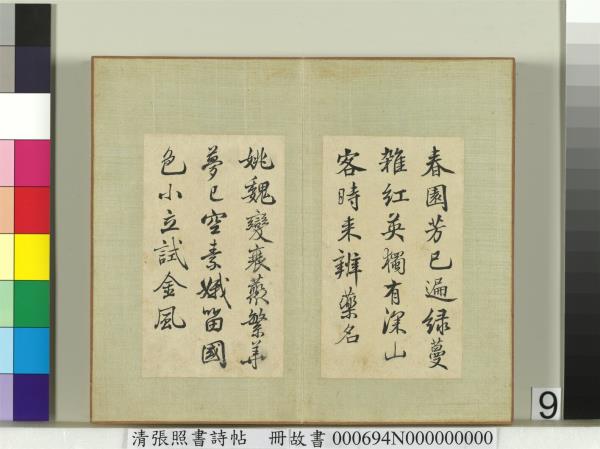 春園芳已遍綠蔓
雜紅英獨有深山
客時来辨藥名
姚魏變衰繁華
夢已空素娥留國
色小立試金風
9
清張照書詩帖 冊故書 000694N000000000